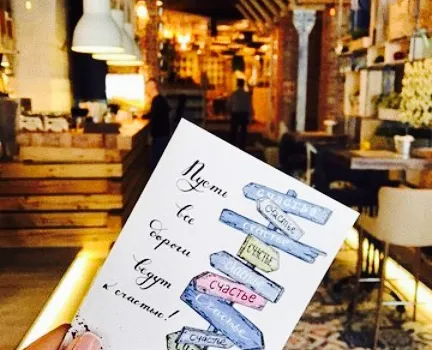 Пусть
все
дороги
ведут
к счастью!
счастье
счастье
счастье
счастье
счастье
счастье
счастье